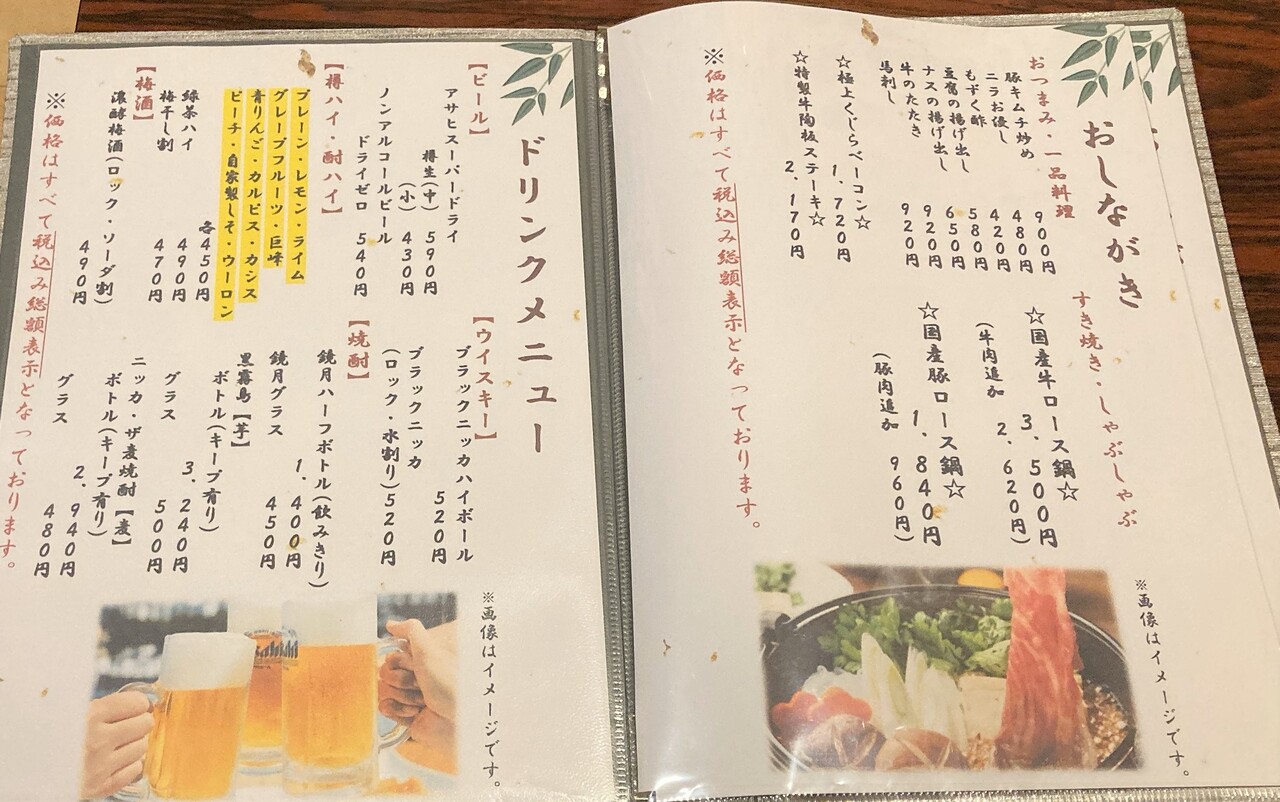 おしながき
おつまみ・一品料理
豚キムチ炒め 900円
ニラお優し 480円
もずく酢 420円
豆腐の揚げ出し 580円
ナスの揚げ出し 650円
牛のたたき 920円
馬刺し 920円
☆極上くじらベーコン☆
1，720円
☆特製牛陶板ステーキ☆
2，170円
すき焼き・しゃぶしゃぶ
☆国産牛ロース鍋☆
3，500円
（牛肉追加 2，620円）
☆国産豚ロース鍋☆
1，840円
（豚肉追加 960円）
※価格はすべて税込み総額表示となっております。
※画像はイメージです。
ドリンクメニュー
【ビール】
アサヒスーパードライ
樽生（中） 590円
（小） 430円
ノンアルコールビール
ドライゼロ 540円
【樽ハイ・酎ハイ】
プレーン・レモン・ライム
グレープフルーツ・巨峰
青りんご・カルピス・カシス
ピーチ・自家製しそ・ウーロン
各450円
緑茶ハイ 490円
梅干し割 470円
【梅酒】
濃醇梅酒（ロック・ソーダ割）
490円
【ウイスキー】
ブラックニッカハイボール
520円
ブラックニッカ
（ロック・水割り）520円
【焼酎】
鏡月ハーフボトル（飲みきり）
1，400円
鏡月グラス 450円
黒霧島【芋】
ボトル（キープ有り）
3，240円
グラス 500円
ニッカ・ザ麦焼酎【麦】
ボトル（キープ有り）
2，940円
グラス 480円
※価格はすべて税込み総額表示となっております。
※画像はイメージです。